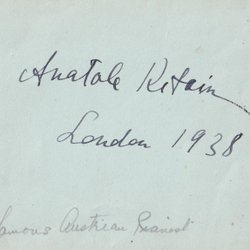 Anatole Kitain
London 1938
famous Austrian Pianist